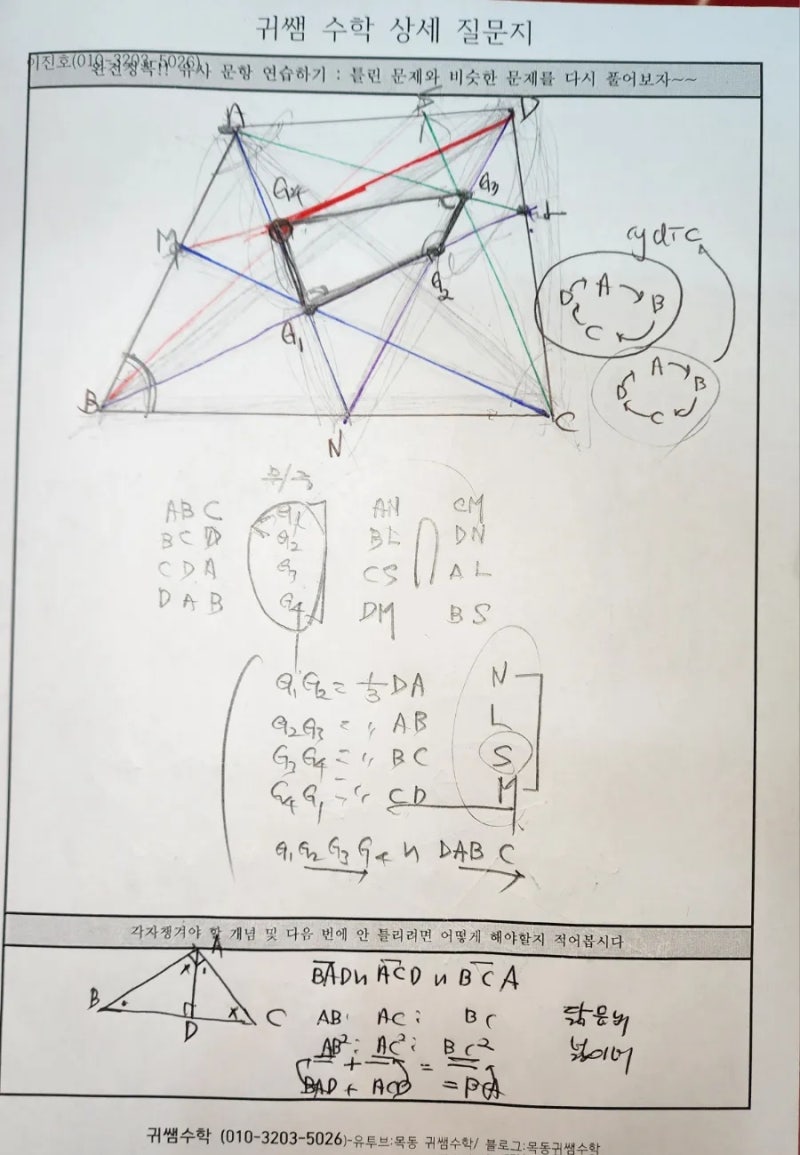 귀쌤 수학 상세 질문지
이진호(010-3203-5026)
완전정복!! 유사 문항 연습하기 : 틀린 문제와 비슷한 문제를 다시 풀어보자~~
A
D
G4
G3
M
L
G2
G1
B
N
C
cyclic
A B C D
A B C D
ABC G1 AN CM
BCD G2 BL DN
CDA G3 CS AL
DAB G4 DM BS
G1G2 = 1/3 DA N
G2G3 = 〃 AB L
G3G4 = 〃 BC S
G4G1 = 〃 CD M
G1G2G3G4 ∽ DABC
각자챙겨야 할 개념 및 다음 번에 안 틀리려면 어떻게 해야할지 적어봅시다
A
B
D
C
BAD ∽ ACD ∽ BCA
AB : AC : BC 닮음비
AB² : AC² : BC² 넓이비
+ =
BAD + ACD = BCA
귀쌤수학 (010-3203-5026)-유투브:목동 귀쌤수학/ 블로그:목동귀쌤수학